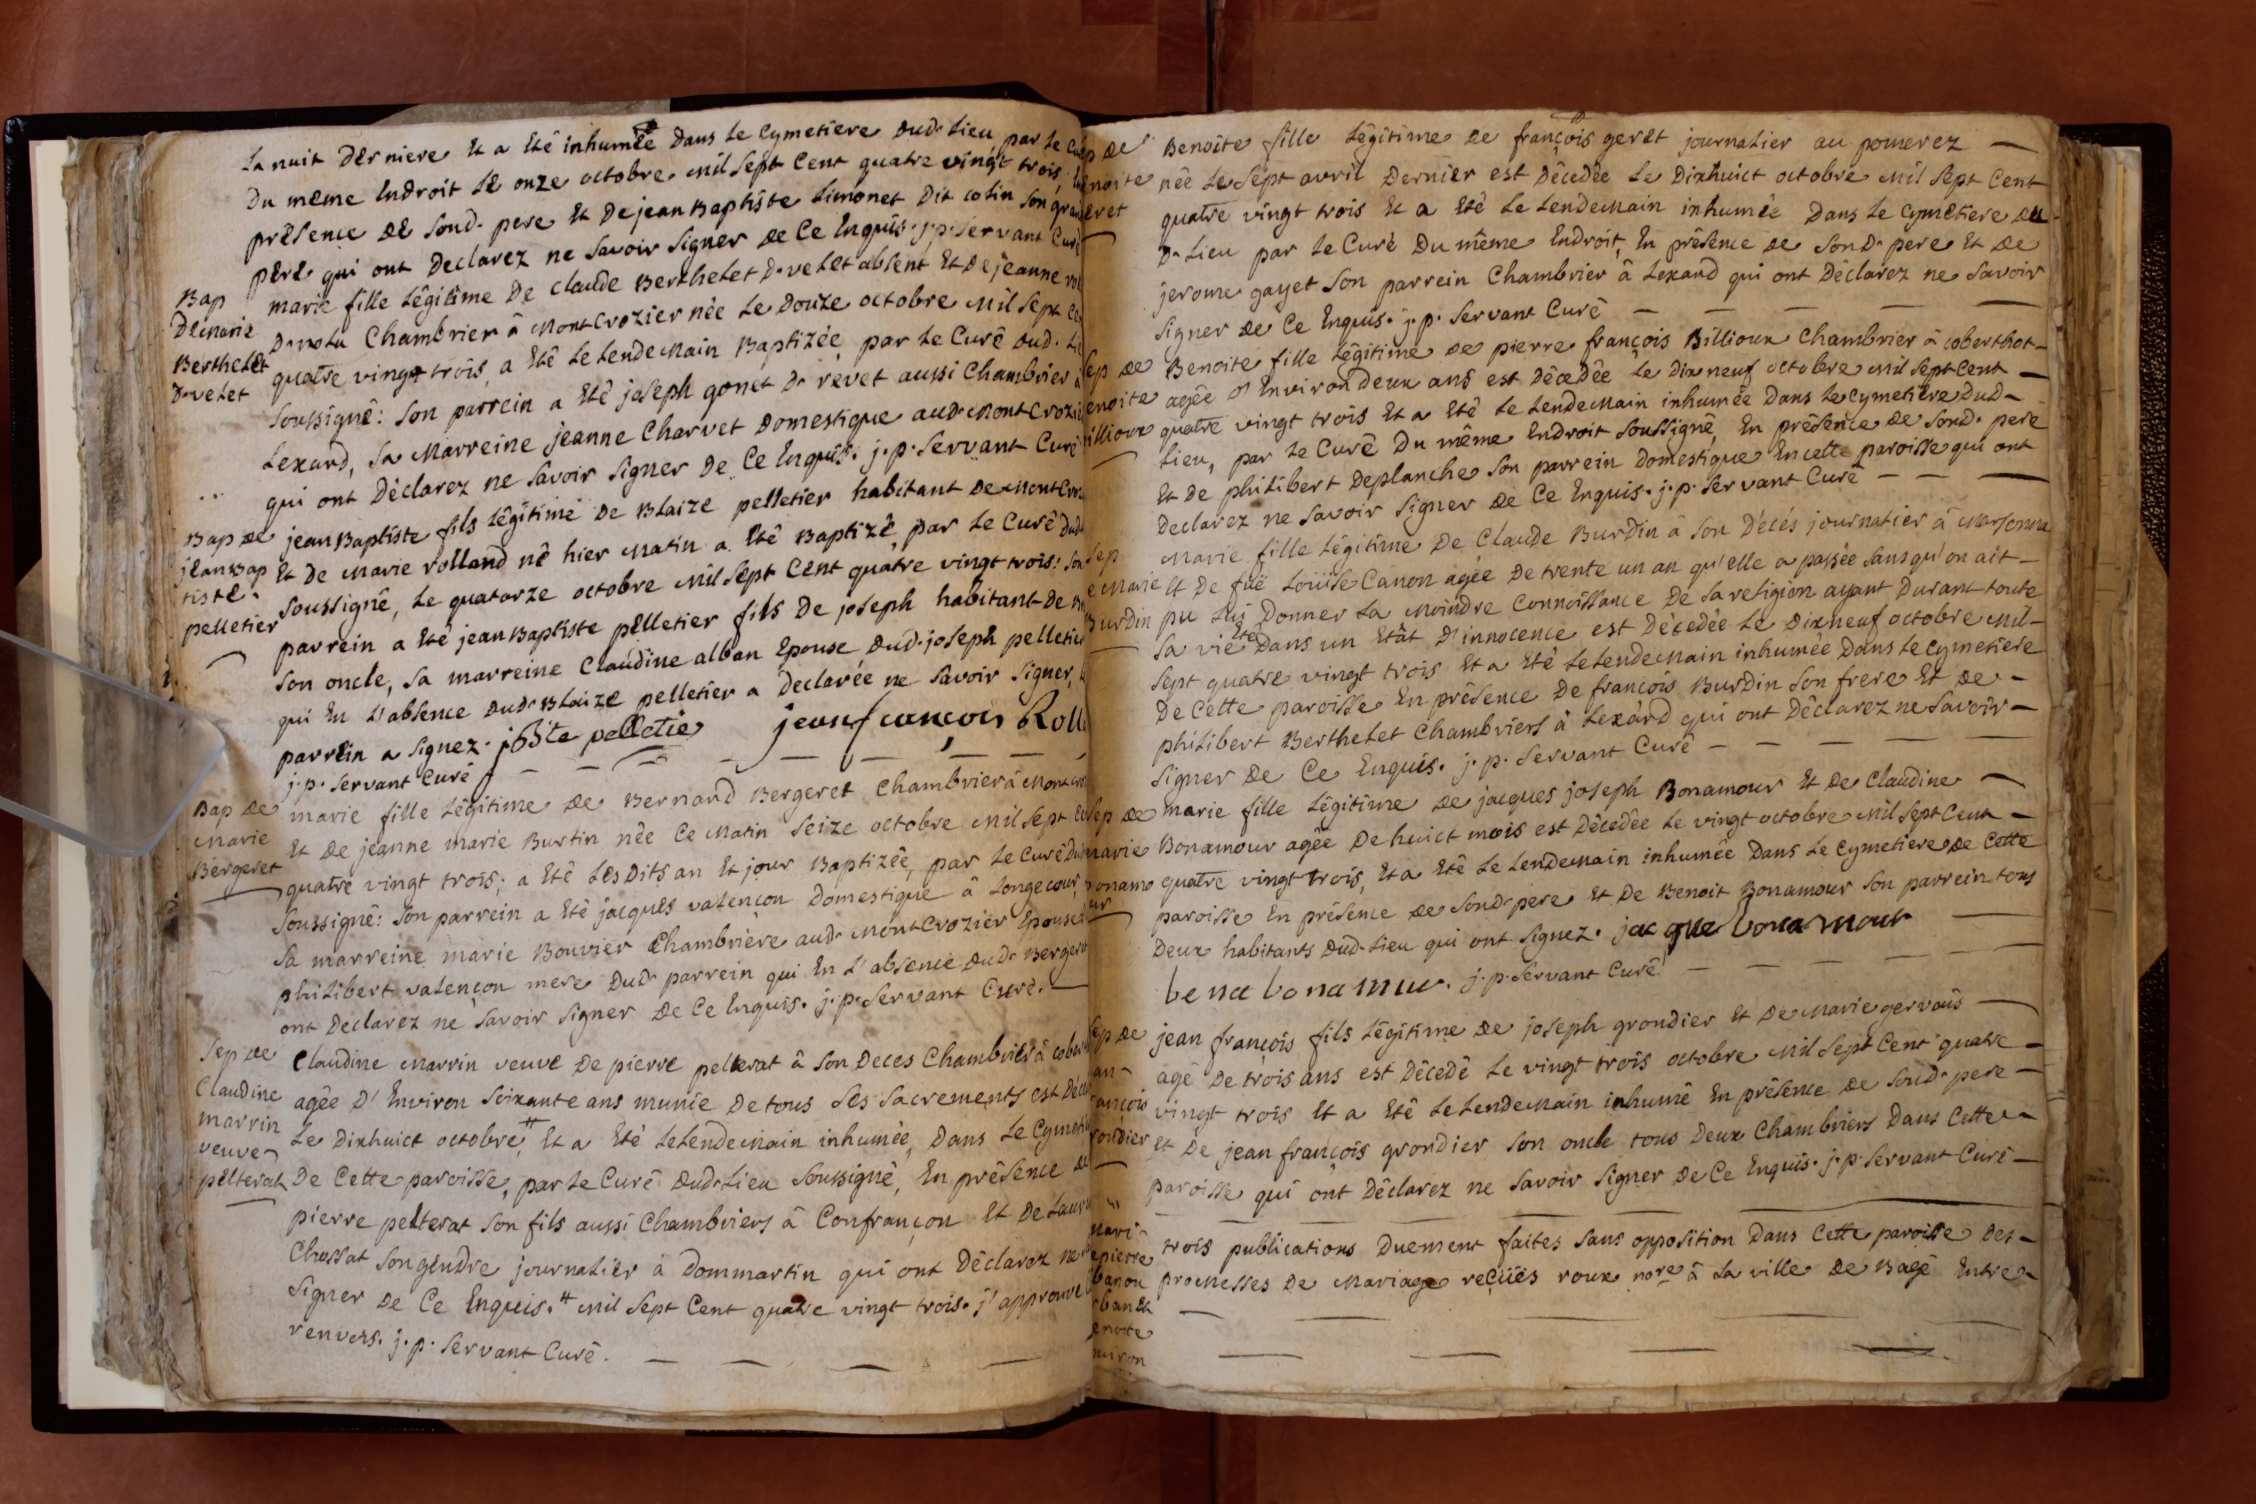 La nuit derniere et a etê inhumêe dans le cymetiere dud. lieu par le
du même Endroit le onze octobre mil sept cent quatre vingt trois,
présence de sond. pere et de jean Baptiste Limonet dit colin son grand
pere qui ont declarez ne savoir signer de ce Enquis. j. p. servant Curê
Bap
De marie
Berthelet
D. velet
marie fille légitime de claude Berthelet D. velet absent et de jeanne
Chambrier â Montcrozier née le douze octobre mil sept
quatre vingt trois, a etê le lendemain Baptizée par le Curê dud.
soussignê: son parrein a etê joseph gonet D. revet aussi chambrier
Lexard, sa marreine jeanne Charvet domestique aud. Montcrozier
qui ont dêclarez ne savoir signer de ce Enquis. j. p. servant Curê
Bap de
jean Bap
tiste
pelletier
jean Baptiste fils légitime de Blaize pelletier habitant de
et de marie rolland nê hier matin a etê Baptizê par le Curê
soussignê, le quatorze octobre mil sept cent quatre vingt trois: son
parrein a etê jean Baptiste pelletier fils de joseph habitant de
son oncle, sa marreine Claudine alban Epouse dud. joseph pelletier
qui En l'absence dud. Blaize pelletier a declarée ne savoir signer,
parrein a signez. j Bste pelletie jean francois Roll
j. p. servant Curê
Bap de
marie
Bergeret
marie fille légitime de Bernard Bergeret chambrier â
et de jeanne marie Burtin née ce matin seize octobre mil sept
quatre vingt trois; a etê lesdits an et jour Baptizée, par le Curê
soussignê: son parrein a etê jacques valençon domestique â Longecour,
sa marreine marie Bouvier Chambriere aud. montcrozier Epouse
philibert valençon mere dud. parrein qui En l'absence dud. Bergeret
ont declarez ne savoir signer de ce Enquis. j. p. servant Curê.
Sep de
Claudine
marrin
veuve
pelterat
Claudine marrin veuve de pierre pelterat â son deces Chambrier â
agée d'Environ soixante ans munie de tous ses sacrements est
Le dixhuict octobre # et a etê le lendemain inhumée, dans le
de cette paroisse, par le Curê dud. lieu soussignê, En présence de
pierre pelterat son fils aussi Chambriers â Confrançon et de
Chassat son gendre journalier â dommartin qui ont déclarez ne
signer de ce Enquis. # mil sept cent quatre vingt trois. j'approuve
renvois. j. p. servant Curê.
Benoite fille légitime de françois geret journalier au pomerez
née le sept avril dernier est décedée le dixhuict octobre mil sept cent
quatre vingt trois et a etê le lendemain inhumée dans le cymetiere du
D. lieu par le Curê du même Endroit, En présence de son D. pere et de
jerome gayet son parrein Chambrier â Lexard qui ont déclarez ne savoir
signer de ce Enquis. j. p. servant Curê
Sep de
Benoite fille légitime de pierre françois Billioux Chambrier â coberthot
agée d'Environ deux ans est décedée le dixneuf octobre mil sept cent
quatre vingt trois et a etê le lendemain inhumée dans le cymetiere dud.
lieu, par le Curê du même Endroit soussignê, En présence de sond. pere
et de philibert Deplanche son parrein domestique En cette paroisse qui ont
declarez ne savoir signer de ce Enquis. j. p. servant Curê
Sep
e Marie
Burdin
Marie fille légitime de Claude Burdin â son décés journalier â marsonna
et de füe Loüise Canon agée de trente un an qu'elle a passée sans qu'on ait
pu lui donner la moindre connoissance de sa religion ayant durant toute
sa vie etê dans un etât d'innocence est décedée le dixneuf octobre mil
sept quatre vingt trois et a etê le lendemain inhumée dans le cymetiere
de cette paroisse En présence de françois Burdin son frere et de
philibert Berthelet Chambriers â Lexard qui ont déclarez ne savoir
signer de ce Enquis. j. p. servant Curê
Sep de
marie
onamo
ur
marie fille légitime de jacques joseph Bonamour et de Claudine
Bonamour agée de huict mois est décedée le vingt octobre mil sept cent
quatre vingt trois, et a etê le lendemain inhumée dans le cymetiere de cette
paroisse En présence de sond. pere et de Benoit Bonamour son parrein tous
deux habitants dud. lieu qui ont signez. jacque bonamour
bena bonamur. j. p. servant Curê
Sep de
an
rançois
rondier
jean françois fils légitime de joseph grondier et de marie gervais
agê de trois ans est décedê le vingt trois octobre mil sept cent quatre
vingt trois et a etê le lendemain inhumê En présence de sond. pere
et de jean françois grondier son oncle tous deux Chambriers dans cette
paroisse qui ont déclarez ne savoir signer de ce Enquis. j. p. servant Curê
mari
epierre
banou
ban et
enoite
trois publications duement faites sans opposition dans cette paroisse des
promesses de mariage reçües roux nore â la ville de Bagê Entre